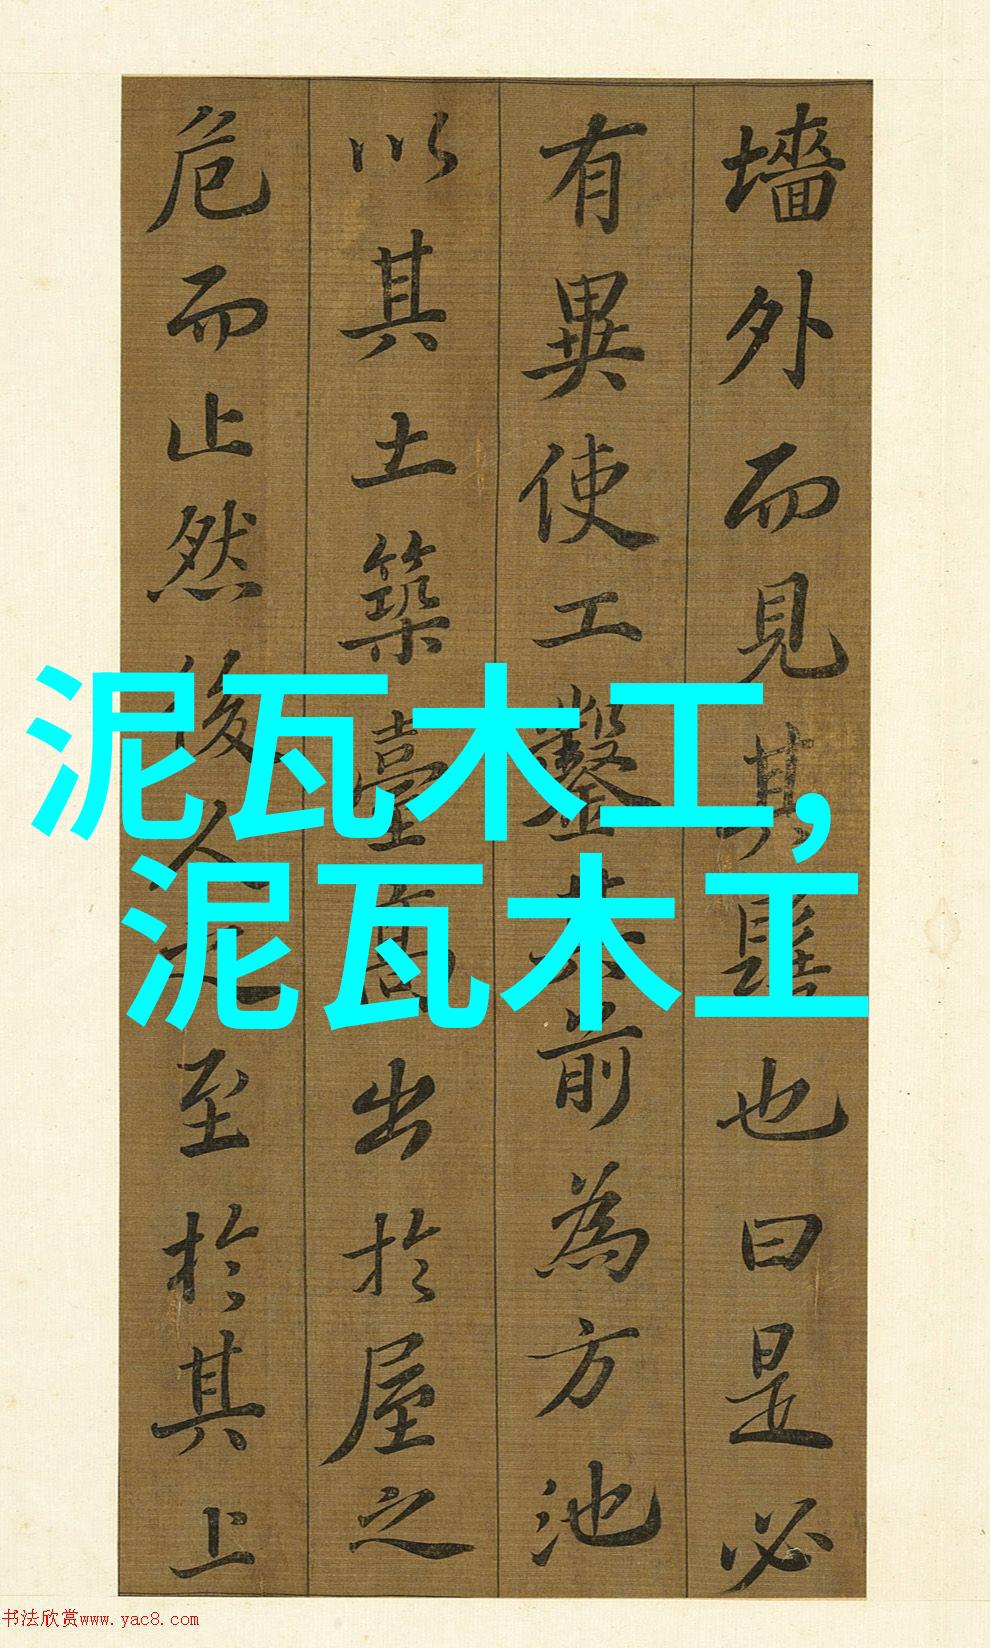 墻外而見其髻也曰是必
有異使工鑿其前為方池
以其土築臺高出於屋之
危而止然後人之至於其上
泥瓦木工,
泥瓦木工
书法欣赏www.yac8.com